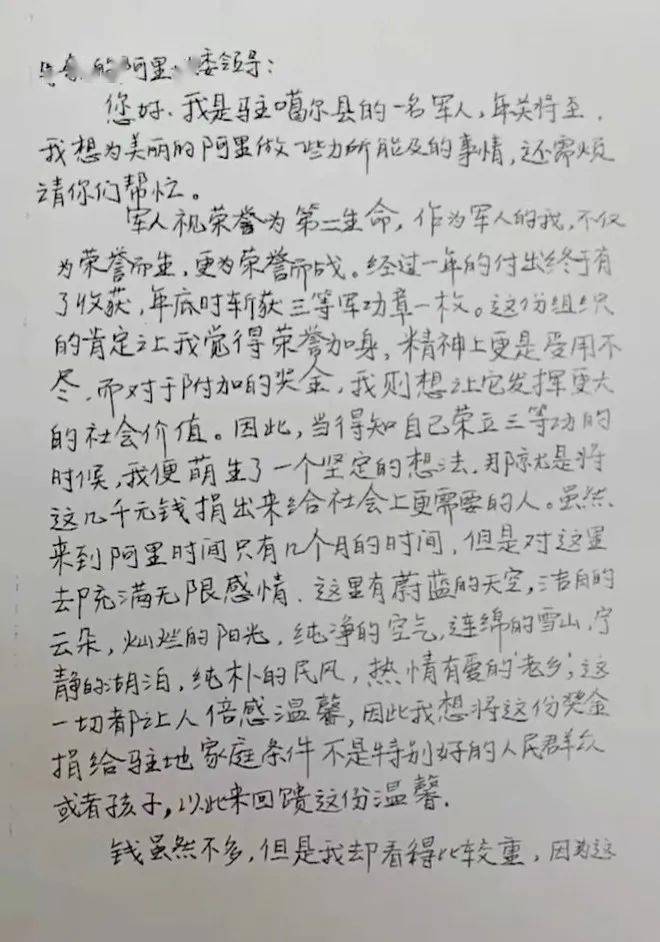 的阿里 委领导：
您好，我是驻噶尔县的一名军人，年关将至，
我想为美丽的阿里做一些力所能及的事情，还需烦
请你们帮忙。
军人视荣誉为第二生命，作为军人的我，不仅
为荣誉而生，更为荣誉而战。经过一年的付出终于有
了收获，年底时斩获三等军功章一枚。这份组织
的肯定让我觉得荣誉加身，精神上更是受用不
尽，而对于附加的奖金，我则想让它发挥更大
的社会价值。因此，当得知自己荣立三等功的
时候，我便萌生了一个坚定的想法，那就是将
这几千元钱捐出来给社会上更需要的人。虽然
来到阿里时间只有几个月的时间，但是对这里
却充满无限感情，这里有蔚蓝的天空，洁白的
云朵，灿烂的阳光，纯净的空气，连绵的雪山，宁
静的湖泊，纯朴的民风，热情有爱的‘老乡’，这
一切都让人倍感温馨，因此我想将这份奖金
捐给驻地家庭条件不是特别好的人民群众
或者孩子，以此来回馈这份温馨.
钱虽然不多，但是我却看得比较重，因为这